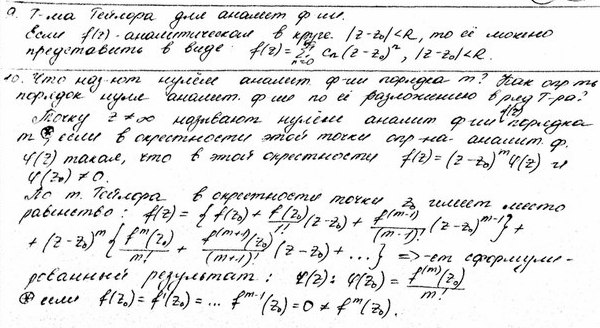 9. Т-ма Тейлора для аналит. ф-ии.
Если f(z) - аналитическая в круге |z-z₀|<R, то её можно
представить в виде f(z)=∑_{n=0}^{∞} cₙ(z-z₀)ⁿ, |z-z₀|<R.
10. Что наз-ют нулём аналит. ф-ии порядка m? Как опр-ть
порядок нуля аналит. ф-ии по её разложению в ряд Т-ра?
Точку z≠∞ называют нулём аналит. ф-ии f(z) порядка
m ⊛, если в окрестности этой точки опр-на аналит. ф.
φ(z) такая, что в этой окрестности f(z)=(z-z₀)ᵐ φ(z) и
φ(z₀)≠0.
По т. Тейлора в окрестности точки z₀ имеет место
равенство: f(z)={f(z₀)+f'(z₀)/1!(z-z₀)+f^(m-1)/(m-1)!(z-z₀)^{m-1}}+
+(z-z₀)ᵐ{fᵐ(z₀)/m!+f^(m+1)(z₀)/(m+1)!(z-z₀)+...} =>-ет сформули-
рованный результат: φ(z): φ(z₀)=f^(m)(z₀)/m!
⊛ если f(z₀)=f'(z₀)=...f^{m-1}(z₀)=0≠fᵐ(z₀).